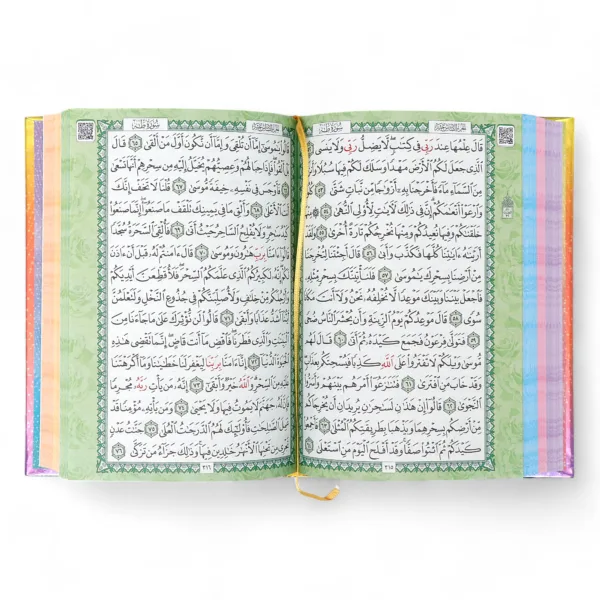 سُورَةُ طٰهٰ
قَالَ عِلْمُهَا عِندَ رَبِّي فِي كِتَٰبٍ لَّا يَضِلُّ رَبِّي وَلَا يَنسَى ٥٢
الَّذِي جَعَلَ لَكُمُ الْأَرْضَ مَهْدًا وَسَلَكَ لَكُمْ فِيهَا سُبُلًا
مِنَ السَّمَاءِ مَاءً فَأَخْرَجْنَا بِهِ أَزْوَٰجًا مِّن نَّبَاتٍ شَتَّىٰ ٥٣
وَارْعَوْا أَنْعَٰمَكُمْ إِنَّ فِي ذَٰلِكَ لَءَايَٰتٍ لِّأُولِي النُّهَىٰ ٥٤
خَلَقْنَٰكُمْ وَفِيهَا نُعِيدُكُمْ وَمِنْهَا نُخْرِجُكُمْ تَارَةً أُخْرَىٰ ٥٥
أَرَيْنَٰهُ ءَايَٰتِنَا كُلَّهَا فَكَذَّبَ وَأَبَىٰ ٥٦ قَالَ أَجِئْتَنَا لِتُخْرِجَنَا
مِنْ أَرْضِنَا بِسِحْرِكَ يَٰمُوسَىٰ ٥٧ فَلَنَأْتِيَنَّكَ بِسِحْرٍ مِّثْلِهِ
فَاجْعَلْ بَيْنَنَا وَبَيْنَكَ مَوْعِدًا لَّا نُخْلِفُهُ نَحْنُ وَلَا أَنتَ
سُوًى ٥٨ قَالَ مَوْعِدُكُمْ يَوْمُ الزِّينَةِ وَأَن يُحْشَرَ النَّاسُ ضُحًى
٥٩ فَتَوَلَّىٰ فِرْعَوْنُ فَجَمَعَ كَيْدَهُ ثُمَّ أَتَىٰ ٦٠ قَالَ لَهُم
مُّوسَىٰ وَيْلَكُمْ لَا تَفْتَرُوا عَلَى اللَّهِ كَذِبًا فَيُسْحِتَكُم بِعَذَابٍ
وَقَدْ خَابَ مَنِ افْتَرَىٰ ٦١ فَتَنَٰزَعُوا أَمْرَهُم بَيْنَهُمْ وَأَسَرُّوا
النَّجْوَىٰ ٦٢ قَالُوا إِنْ هَٰذَٰنِ لَسَٰحِرَٰنِ يُرِيدَانِ أَن يُخْرِجَاكُم
مِّنْ أَرْضِكُم بِسِحْرِهِمَا وَيَذْهَبَا بِطَرِيقَتِكُمُ الْمُثْلَىٰ
كَيْدَكُمْ ثُمَّ ائْتُوا صَفًّا وَقَدْ أَفْلَحَ الْيَوْمَ مَنِ اسْتَعْلَىٰ
٣١٥
سُورَةُ طٰهٰ
يَٰمُوسَىٰ إِمَّا أَن تُلْقِيَ وَإِمَّا أَن نَّكُونَ أَوَّلَ مَنْ أَلْقَىٰ ٦٥ قَالَ
أَلْقُوا فَإِذَا حِبَالُهُمْ وَعِصِيُّهُمْ يُخَيَّلُ إِلَيْهِ مِن سِحْرِهِمْ أَنَّهَا تَسْعَىٰ
فَأَوْجَسَ فِي نَفْسِهِ خِيفَةً مُّوسَىٰ ٦٧ قُلْنَا لَا تَخَفْ إِنَّكَ
أَنتَ الْأَعْلَىٰ ٦٨ وَأَلْقِ مَا فِي يَمِينِكَ تَلْقَفْ مَا صَنَعُوا إِنَّمَا صَنَعُوا
سَٰحِرٍ وَلَا يُفْلِحُ السَّاحِرُ حَيْثُ أَتَىٰ ٦٩ فَأُلْقِيَ السَّحَرَةُ سُجَّدًا
ءَامَنَّا بِرَبِّ هَٰرُونَ وَمُوسَىٰ ٧٠ قَالَ ءَامَنتُمْ لَهُ قَبْلَ أَنْ ءَاذَنَ
لَكُمْ إِنَّهُ لَكَبِيرُكُمُ الَّذِي عَلَّمَكُمُ السِّحْرَ فَلَأُقَطِّعَنَّ أَيْدِيَكُمْ
وَأَرْجُلَكُم مِّنْ خِلَٰفٍ وَلَأُصَلِّبَنَّكُمْ فِي جُذُوعِ النَّخْلِ وَلَتَعْلَمُنَّ
أَيُّنَا أَشَدُّ عَذَابًا وَأَبْقَىٰ ٧١ قَالُوا لَن نُّؤْثِرَكَ عَلَىٰ مَا جَاءَنَا مِنَ
الْبَيِّنَٰتِ وَالَّذِي فَطَرَنَا فَاقْضِ مَا أَنتَ قَاضٍ إِنَّمَا تَقْضِي هَٰذِهِ
الْحَيَوٰةَ الدُّنْيَا ٧٢ إِنَّا ءَامَنَّا بِرَبِّنَا لِيَغْفِرَ لَنَا خَطَٰيَٰنَا وَمَا أَكْرَهْتَنَا
عَلَيْهِ مِنَ السِّحْرِ وَاللَّهُ خَيْرٌ وَأَبْقَىٰ ٧٣ إِنَّهُ مَن يَأْتِ رَبَّهُ مُجْرِمًا
فَإِنَّ لَهُ جَهَنَّمَ لَا يَمُوتُ فِيهَا وَلَا يَحْيَىٰ ٧٤ وَمَن يَأْتِهِ مُؤْمِنًا قَدْ
عَمِلَ الصَّٰلِحَٰتِ فَأُولَٰئِكَ لَهُمُ الدَّرَجَٰتُ الْعُلَىٰ ٧٥ جَنَّٰتُ عَدْنٍ
تَجْرِي مِن تَحْتِهَا الْأَنْهَٰرُ خَٰلِدِينَ فِيهَا وَذَٰلِكَ جَزَاءُ مَن تَزَكَّىٰ ٧٦
٣١٦